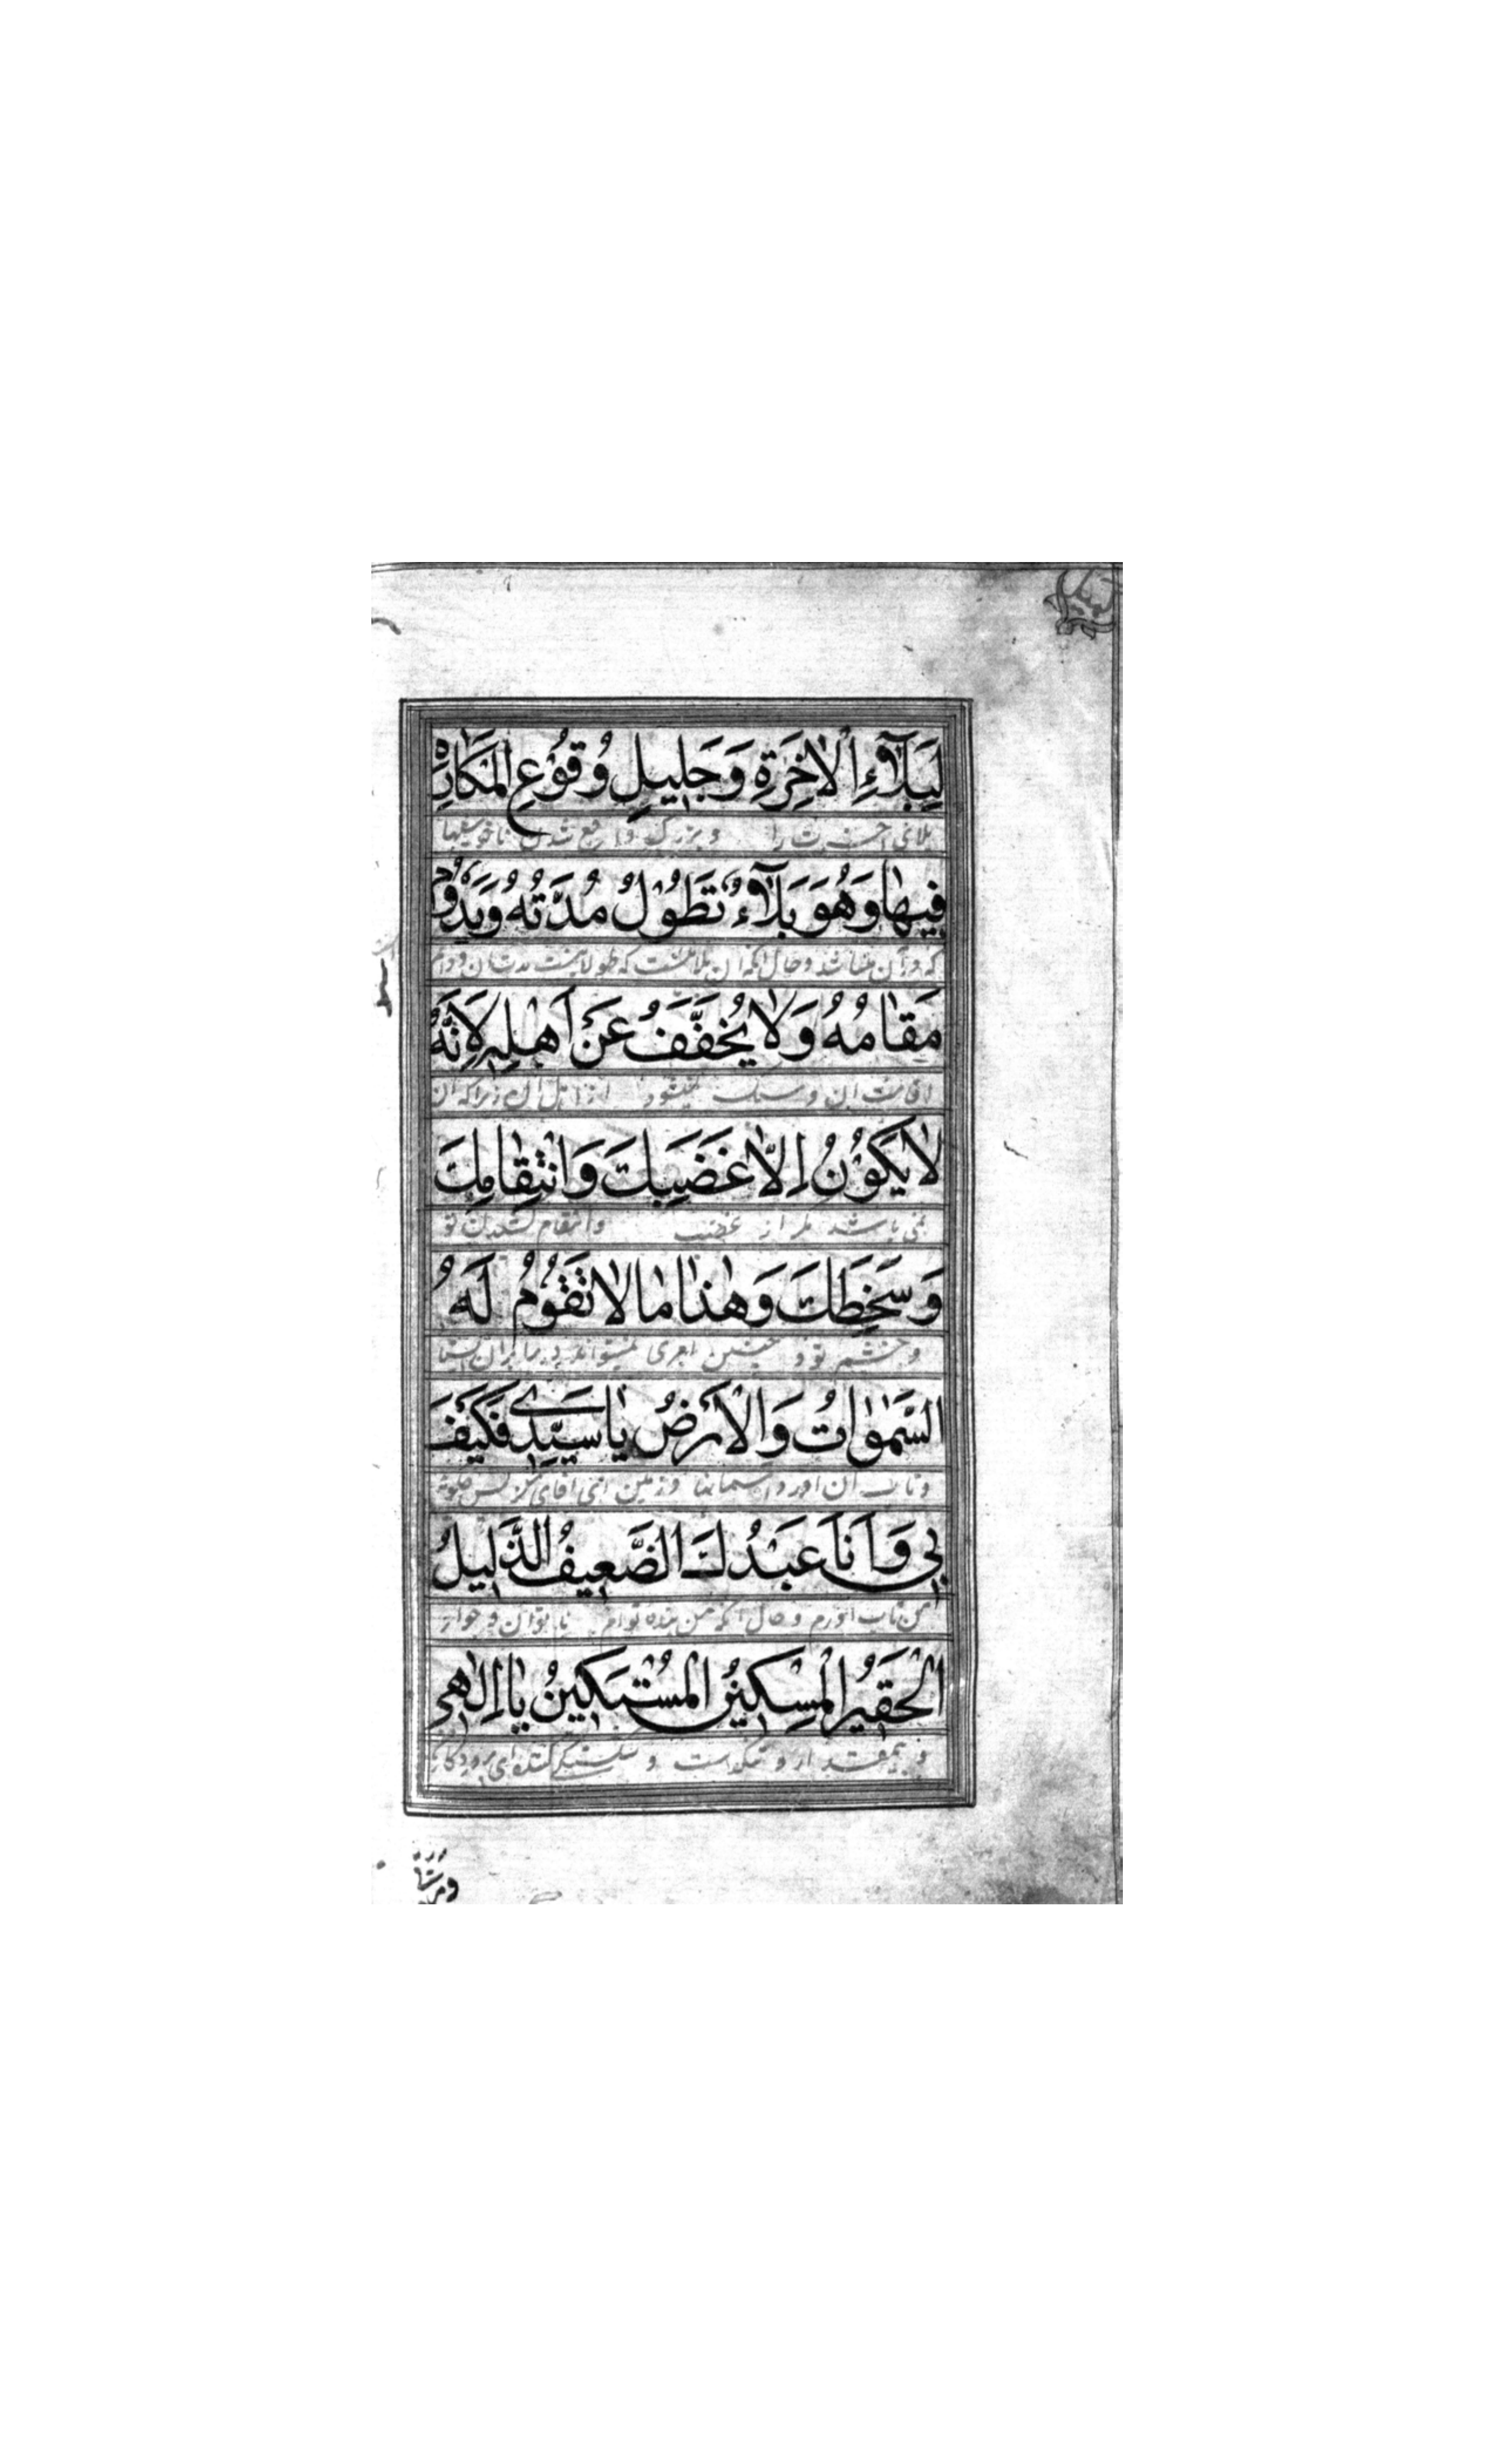 لِبَلَآءِ الْاٰخِرَةِ وَجَلِيلِ وُقُوْعِ الْمَكَارِهِ
بلای آخرت را و بزرک واقع شدن ناخوشیها
فِيهٰا وَهُوَ بَلَآءٌ تَطُوْلُ مُدَّتُهُ وَيَدُوْمُ
که در آن میباشد و حال آنکه آن بلائیست که طولانیست مدت آن و دائم
مَقٰامُهُ وَلٰا يُخَفَّفُ عَنْ اَهْلِهِ لِاَنَّهُ
اقامت آن و سبک نمیشود از اهل آن زیرا که آن
لٰا يَكُوْنُ اِلّٰا عَنْ غَضَبِكَ وَانْتِقٰامِكَ
نمی باشد مکر از غضب وانتقام کشیدن تو
وَسَخَطِكَ وَهٰذٰا مٰا لٰا تَقُوْمُ لَهُ
و خشم تو و چنین امری نمیتواند در برابر آن
السَّمٰوٰاتُ وَالْاَرْضُ يٰا سَيِّدِي فَكَيْفَ
و تاب آن آورد آسمانها و زمین ای آقای من پس چکونه
بِي وَاَنَا عَبْدُكَ الضَّعِيفُ الذَّلِيلُ
من تاب آورم و حال آنکه من بنده توام ناتوان و خوار
الْحَقِيرُ الْمِسْكِينُ الْمُسْتَكِينُ يٰا اِلٰهِي
و بیمقدار و تنکدست و